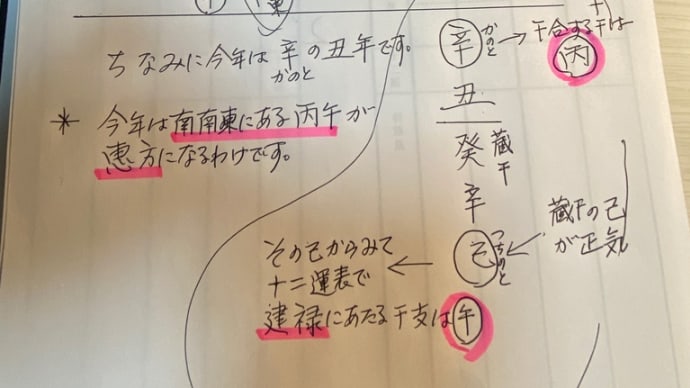 ちなみに今年は辛の丑年です。
かのと
* 今年は南南東にある丙午が
恵方になるわけです。
辛 かのと → 干合する干は
十
丙
丑
癸 蔵干
辛
己 つちのと ← 蔵干の己
が正気
その己からみて ←
十二運表で
建禄にあたる干支は午